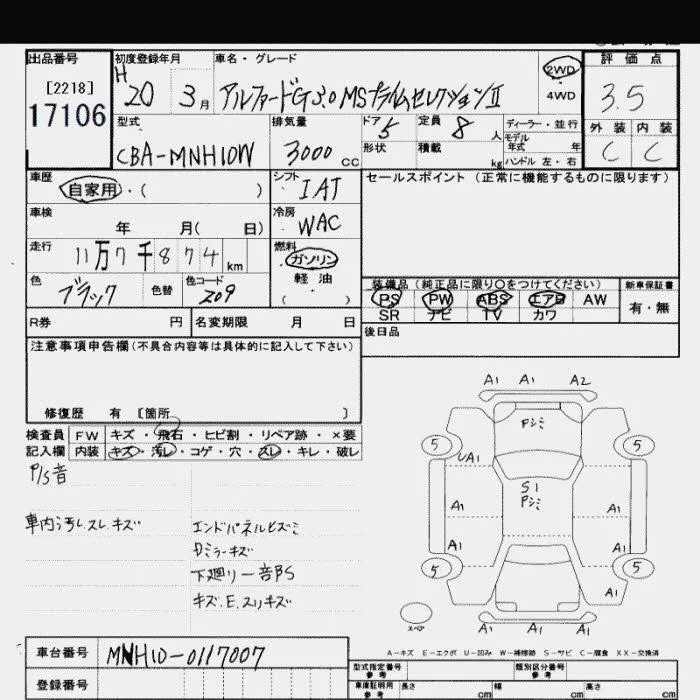 出品番号 初度登録年月 車名・グレード 2WD 評価点
[2218] H
17106 20 3月 アルファードG 3.0 MSプライムセレクションⅡ 4WD 3.5
型式 排気量 ドア 5 定員 8人 ディーラー・並行 外装 内装
CBA-MNH10W 3000cc 形状 積載 kg モデル年式 年 C C
ハンドル 左・右
車歴 シフト セールスポイント (正常に機能するものに限ります)
自家用・( ) IAT
車検 冷房
年 月( 日) WAC
走行 燃料
11万7千874km ガソリン
色 色替 色コード 軽油 装備品 (純正品に限り〇をつけてください) 新車保証書
ブラック 209 ( ) PS PW ABS エアB AW 有・無
SR ナビ TV カワ
R券 円 名変期限 月 日 後日品
注意事項申告欄(不具合内容等は具体的に記入して下さい)
修復歴 有 [箇所 ]
検査員 FW キズ・飛石・ヒビ割・リペア跡・×要
記入欄 内装 キズ・汚レ・コゲ・穴・スレ・キレ・破レ
P/S音
車内汚レスレキズ
エンドパネルヒズミ
下廻リ
A1 A1 A2
5 5
UA1
S1
A1 A1
A1 A1
5 5
A1
A1 A1 A1
スペア
A-キズ E-エクボ U-凹み W-補修跡 S-サビ C-腐食 XX-交換済
車台番号 MNH10-0117007
登録番号
型式指定番号 参考 類別区分番号 参考
車庫証明用 参考 長さ cm 幅 cm 高さ cm